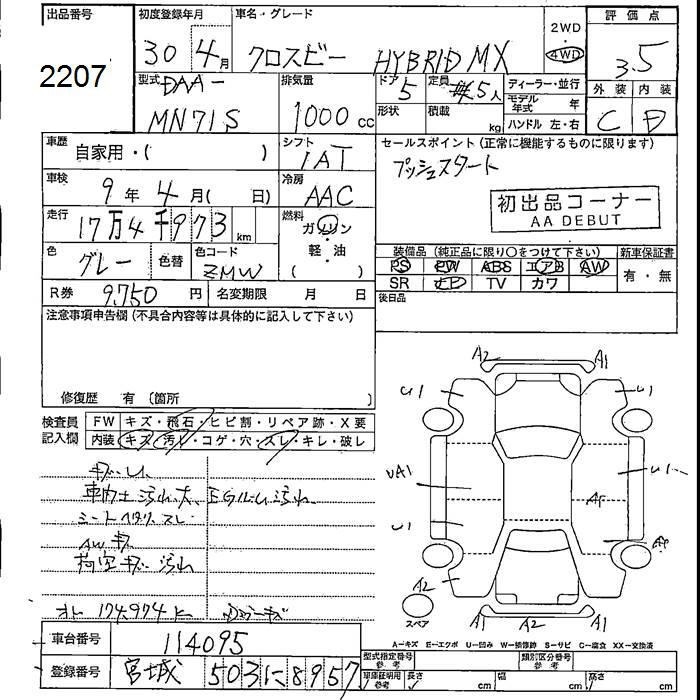 出品番号
2207
初度登録年月
30年4月
車名・グレード
クロスビー HYBRID MX
2WD
・
4WD
評価点
3.5
外装 内装
C D
型式 DAA-
MN71S
排気量
1000 cc
ドア 5
定員 5人
形状
積載 kg
ディーラー・並行
モデル年式 年
ハンドル 左・右
車歴
自家用・( )
シフト
IAT
車検
9年4月( 日)
冷房
AAC
走行
17万4千973 km
燃料
ガソリン
・
軽・油
( )
色
グレー
色替
色コード
ZMW
R券 9,750 円
名変期限 月 日
セールスポイント(正常に機能するものに限ります)
プッシュスタート
初出品コーナー
AA DEBUT
装備品(純正品に限り○をつけて下さい)
新車保証書
PS PW ABS エアB AW
SR ナビ TV カワ
有・無
後日品
注意事項申告欄(不具合内容等は具体的に記入して下さい)
修復歴 有 (箇所
検査員記入欄
FW キズ・飛石・ヒビ割・リペア跡・X要
内装 キズ・汚れ・コゲ・穴・スレ・キレ・破レ
車内上汚れ大
シートヘタリ スレ
AWキズ
荷室キズ 汚れ
オト 174,974 K
車台番号
114095
登録番号
宮城 503 に 8957
A2 A1
U1 U1
UA1 U1
U1
A2
A1 A2 A1
スペア
A－キズ E－エクボ U－凹み W－補修跡 S－サビ C－腐食 XX－交換済
型式指定番号 参考
類別区分番号 参考
車庫証明用 参考
長さ cm
幅 cm
高さ cm